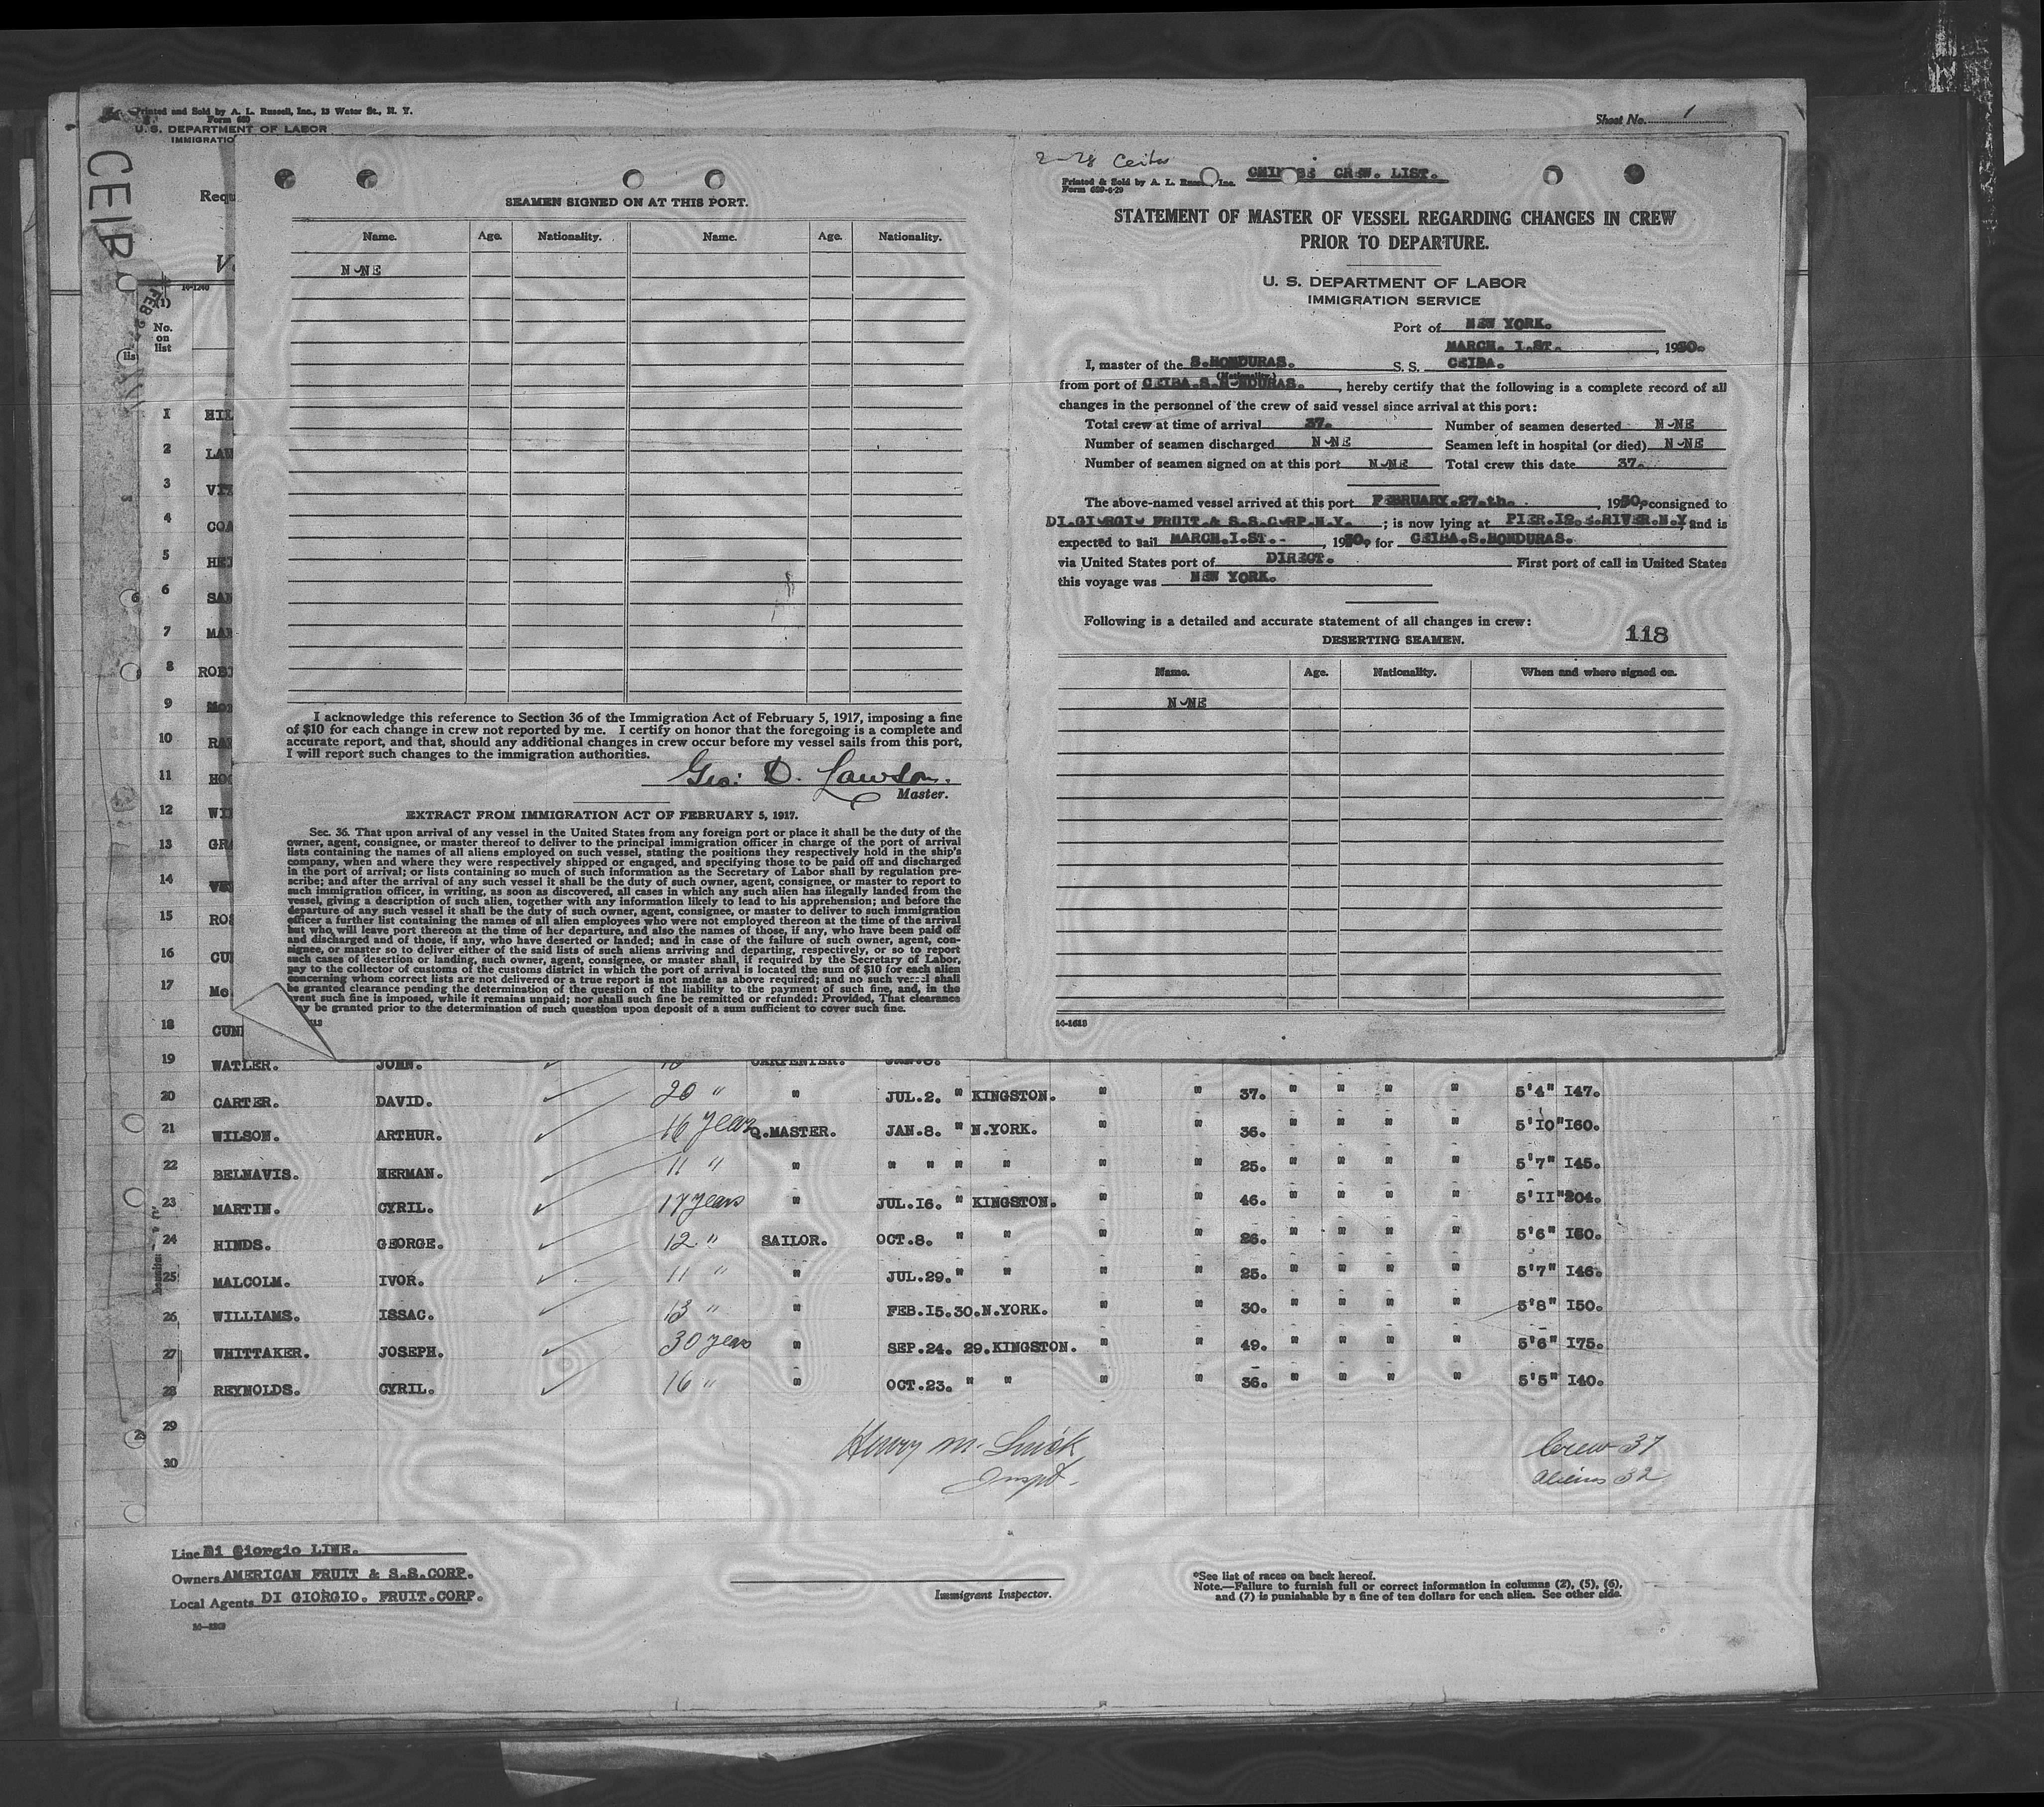 Printed and Sold by A. L. Russell, Inc., 13 Water St., N. Y.
Form 680
U. S. DEPARTMENT OF LABOR
IMMIGRATIO
Sheet No. 1
CEIBA
Requ
V
14-1240
FEB 2
(1)
No.
on
list
SEAMEN SIGNED ON AT THIS PORT.
Name. Age. Nationality. Name. Age. Nationality.
NONE
I acknowledge this reference to Section 36 of the Immigration Act of February 5, 1917, imposing a fine
of $10 for each change in crew not reported by me. I certify on honor that the foregoing is a complete and
accurate report, and that, should any additional changes in crew occur before my vessel sails from this port,
I will report such changes to the immigration authorities.
Geo: D. Lawson.
Master.
EXTRACT FROM IMMIGRATION ACT OF FEBRUARY 5, 1917.
Sec. 36. That upon arrival of any vessel in the United States from any foreign port or place it shall be the duty of the
owner, agent, consignee, or master thereof to deliver to the principal immigration officer in charge of the port of arrival
lists containing the names of all aliens employed on such vessel, stating the positions they respectively hold in the ship's
company, when and where they were respectively shipped or engaged, and specifying those to be paid off and discharged
in the port of arrival; or lists containing so much of such information as the Secretary of Labor shall by regulation pre-
scribe; and after the arrival of any such vessel it shall be the duty of such owner, agent, consignee, or master to report to
such immigration officer, in writing, as soon as discovered, all cases in which any such alien has illegally landed from the
vessel, giving a description of such alien, together with any information likely to lead to his apprehension; and before the
departure of any such vessel it shall be the duty of such owner, agent, consignee, or master to deliver to such immigration
officer a further list containing the names of all alien employees who were not employed thereon at the time of the arrival
but who will leave port thereon at the time of her departure, and also the names of those, if any, who have been paid off
and discharged and of those, if any, who have deserted or landed; and in case of the failure of such owner, agent, con-
signee, or master so to deliver either of the said lists of such aliens arriving and departing, respectively, or so to report
such cases of desertion or landing, such owner, agent, consignee, or master shall, if required by the Secretary of Labor,
pay to the collector of customs of the customs district in which the port of arrival is located the sum of $10 for each alien
concerning whom correct lists are not delivered or a true report is not made as above required; and no such vessel shall
be granted clearance pending the determination of the question of the liability to the payment of such fine, and, in the
event such fine is imposed, while it remains unpaid; nor shall such fine be remitted or refunded: Provided, That clearance
may be granted prior to the determination of such question upon deposit of a sum sufficient to cover such fine.
2-28 Ceiba
CREW. LIST.
Printed & Sold by A. L. Russell, Inc.
Form 689-6-29
STATEMENT OF MASTER OF VESSEL REGARDING CHANGES IN CREW
PRIOR TO DEPARTURE.
U. S. DEPARTMENT OF LABOR
IMMIGRATION SERVICE
Port of NEW YORK.
MARCH. I.ST. , 1930.
I, master of the S.HONDURAS. S. S. CEIBA.
(Nationality.)
from port of CEIBA.S.HONDURAS. , hereby certify that the following is a complete record of all
changes in the personnel of the crew of said vessel since arrival at this port:
Total crew at time of arrival 37. Number of seamen deserted NONE
Number of seamen discharged NONE Seamen left in hospital (or died) NONE
Number of seamen signed on at this port NONE Total crew this date 37.
The above-named vessel arrived at this port FEBRUARY.27.th. , 1930, consigned to
DI.GIORGIO FRUIT.& S.S.CORP.N.Y. ; is now lying at PIER.IO.E.RIVER.N.Y, and is
expected to sail MARCH.I.ST.- , 1930, for CEIBA.S.HONDURAS.
via United States port of DIRECT. First port of call in United States
this voyage was NEW YORK.
Following is a detailed and accurate statement of all changes in crew:
DESERTING SEAMEN. 118
Name. Age. Nationality. When and where signed on.
NONE
14-1618
1 HIL
2 LAW
3 VIT
4 COA
5 HE
6 SAN
7 MAR
8 ROBI
9 Mor
10 RA
11 HO
12 WI
13 GRA
14
15 ROS
16 CU
17 Mc
18 CUN
19 WATLER. JOHN. CARPENTER.
20 CARTER. DAVID. 20 " " JUL.2. " KINGSTON. " " 37. " " " " 5'4" I47.
21 WILSON. ARTHUR. 16 years Q.MASTER. JAN.8. " N.YORK. " " 36. " " " " 5'IO" I60.
22 BELNAVIS. HERMAN. 11 " " " " " " " " 25. " " " " 5'7" I45.
23 MARTIN. CYRIL. 17 years " JUL.16. " KINGSTON. " " 46. " " " " 5'II" 204.
24 HINDS. GEORGE. 12 " SAILOR. OCT.8. " " " " 26. " " " " 5'6" I60.
25 MALCOLM. IVOR. 11 " " JUL.29. " " " " 25. " " " " 5'7" I46.
26 WILLIAMS. ISSAC. 13 " " FEB.I5.30.N.YORK. " " 30. " " " " 5'8" I50.
27 WHITTAKER. JOSEPH. 30 years " SEP.24. 29.KINGSTON. " " 49. " " " " 5'6" I75.
28 REYNOLDS. CYRIL. 16 " " OCT.23. " " " " 36. " " " " 5'5" I40.
29
30
Henry M. Smick
Inspt.
Crew 37
aliens 32
Line Di Giorgio LINE.
Owners AMERICAN FRUIT & S.S.CORP.
Local Agents DI GIORGIO. FRUIT.CORP.
Immigrant Inspector.
*See list of races on back hereof.
Note.—Failure to furnish full or correct information in columns (2), (5), (6),
and (7) is punishable by a fine of ten dollars for each alien. See other side.